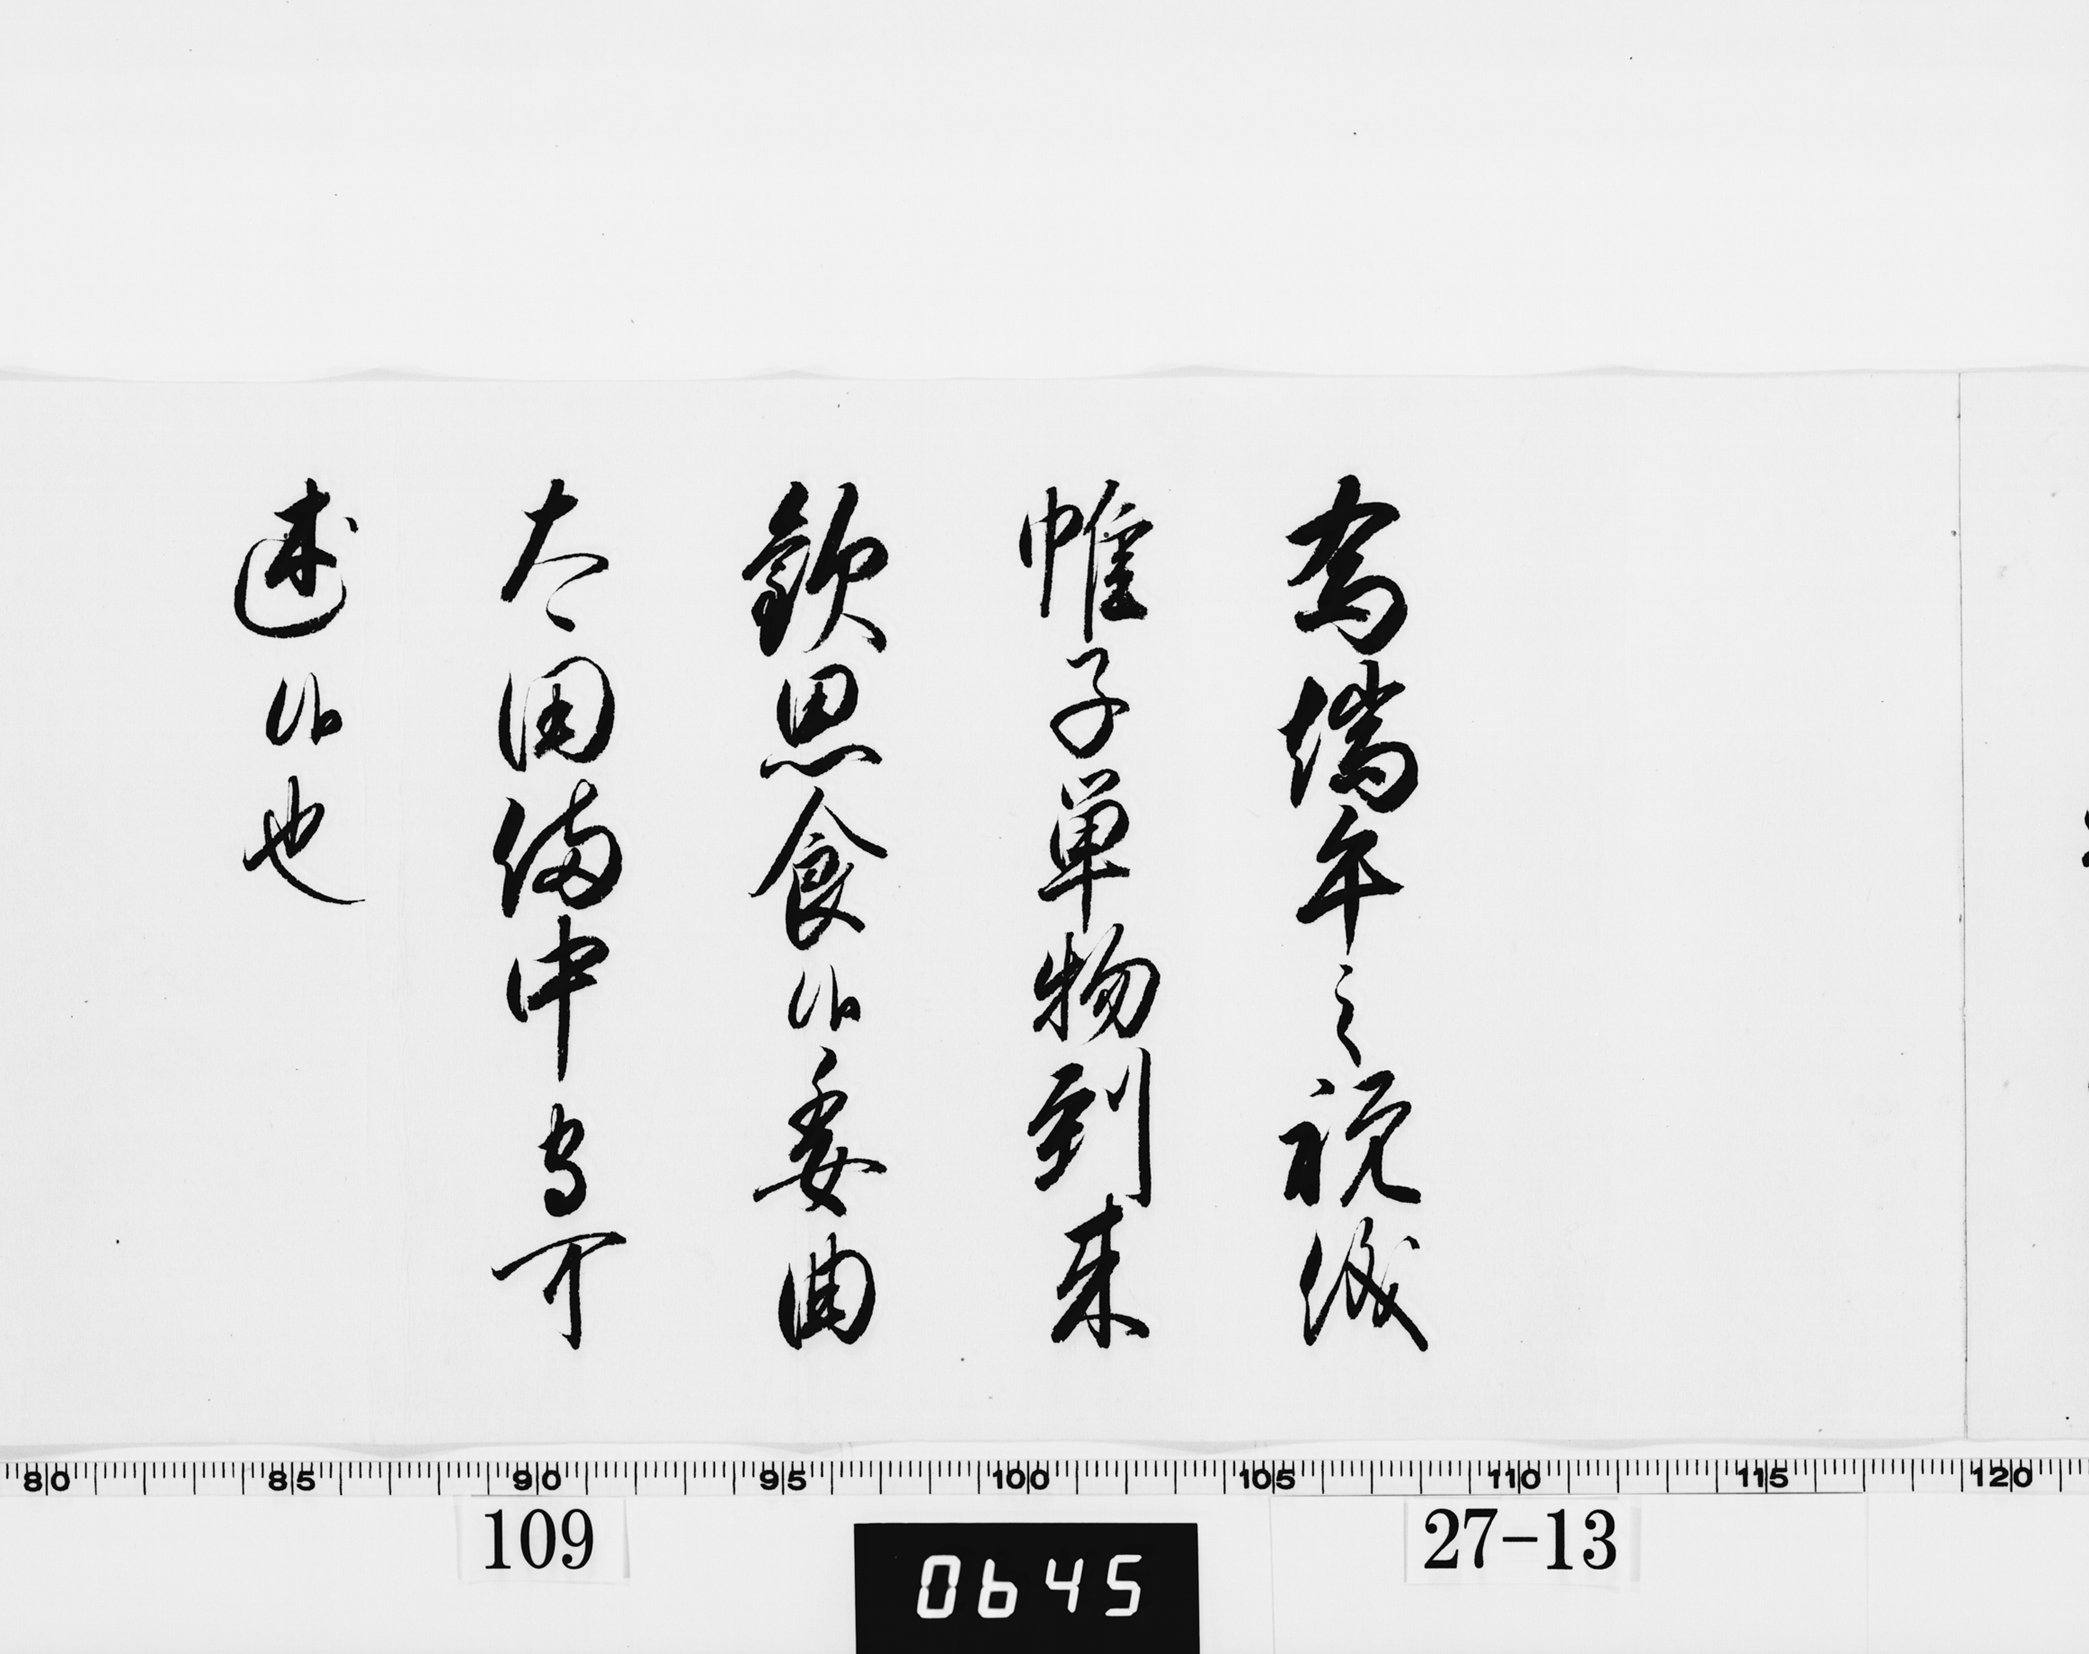 為端午之祝儀
帷子単物到来
歓思食候委曲
太田備中守可
述候也
80 85 90 95 100 105 110 115 120
109
0645
27-13